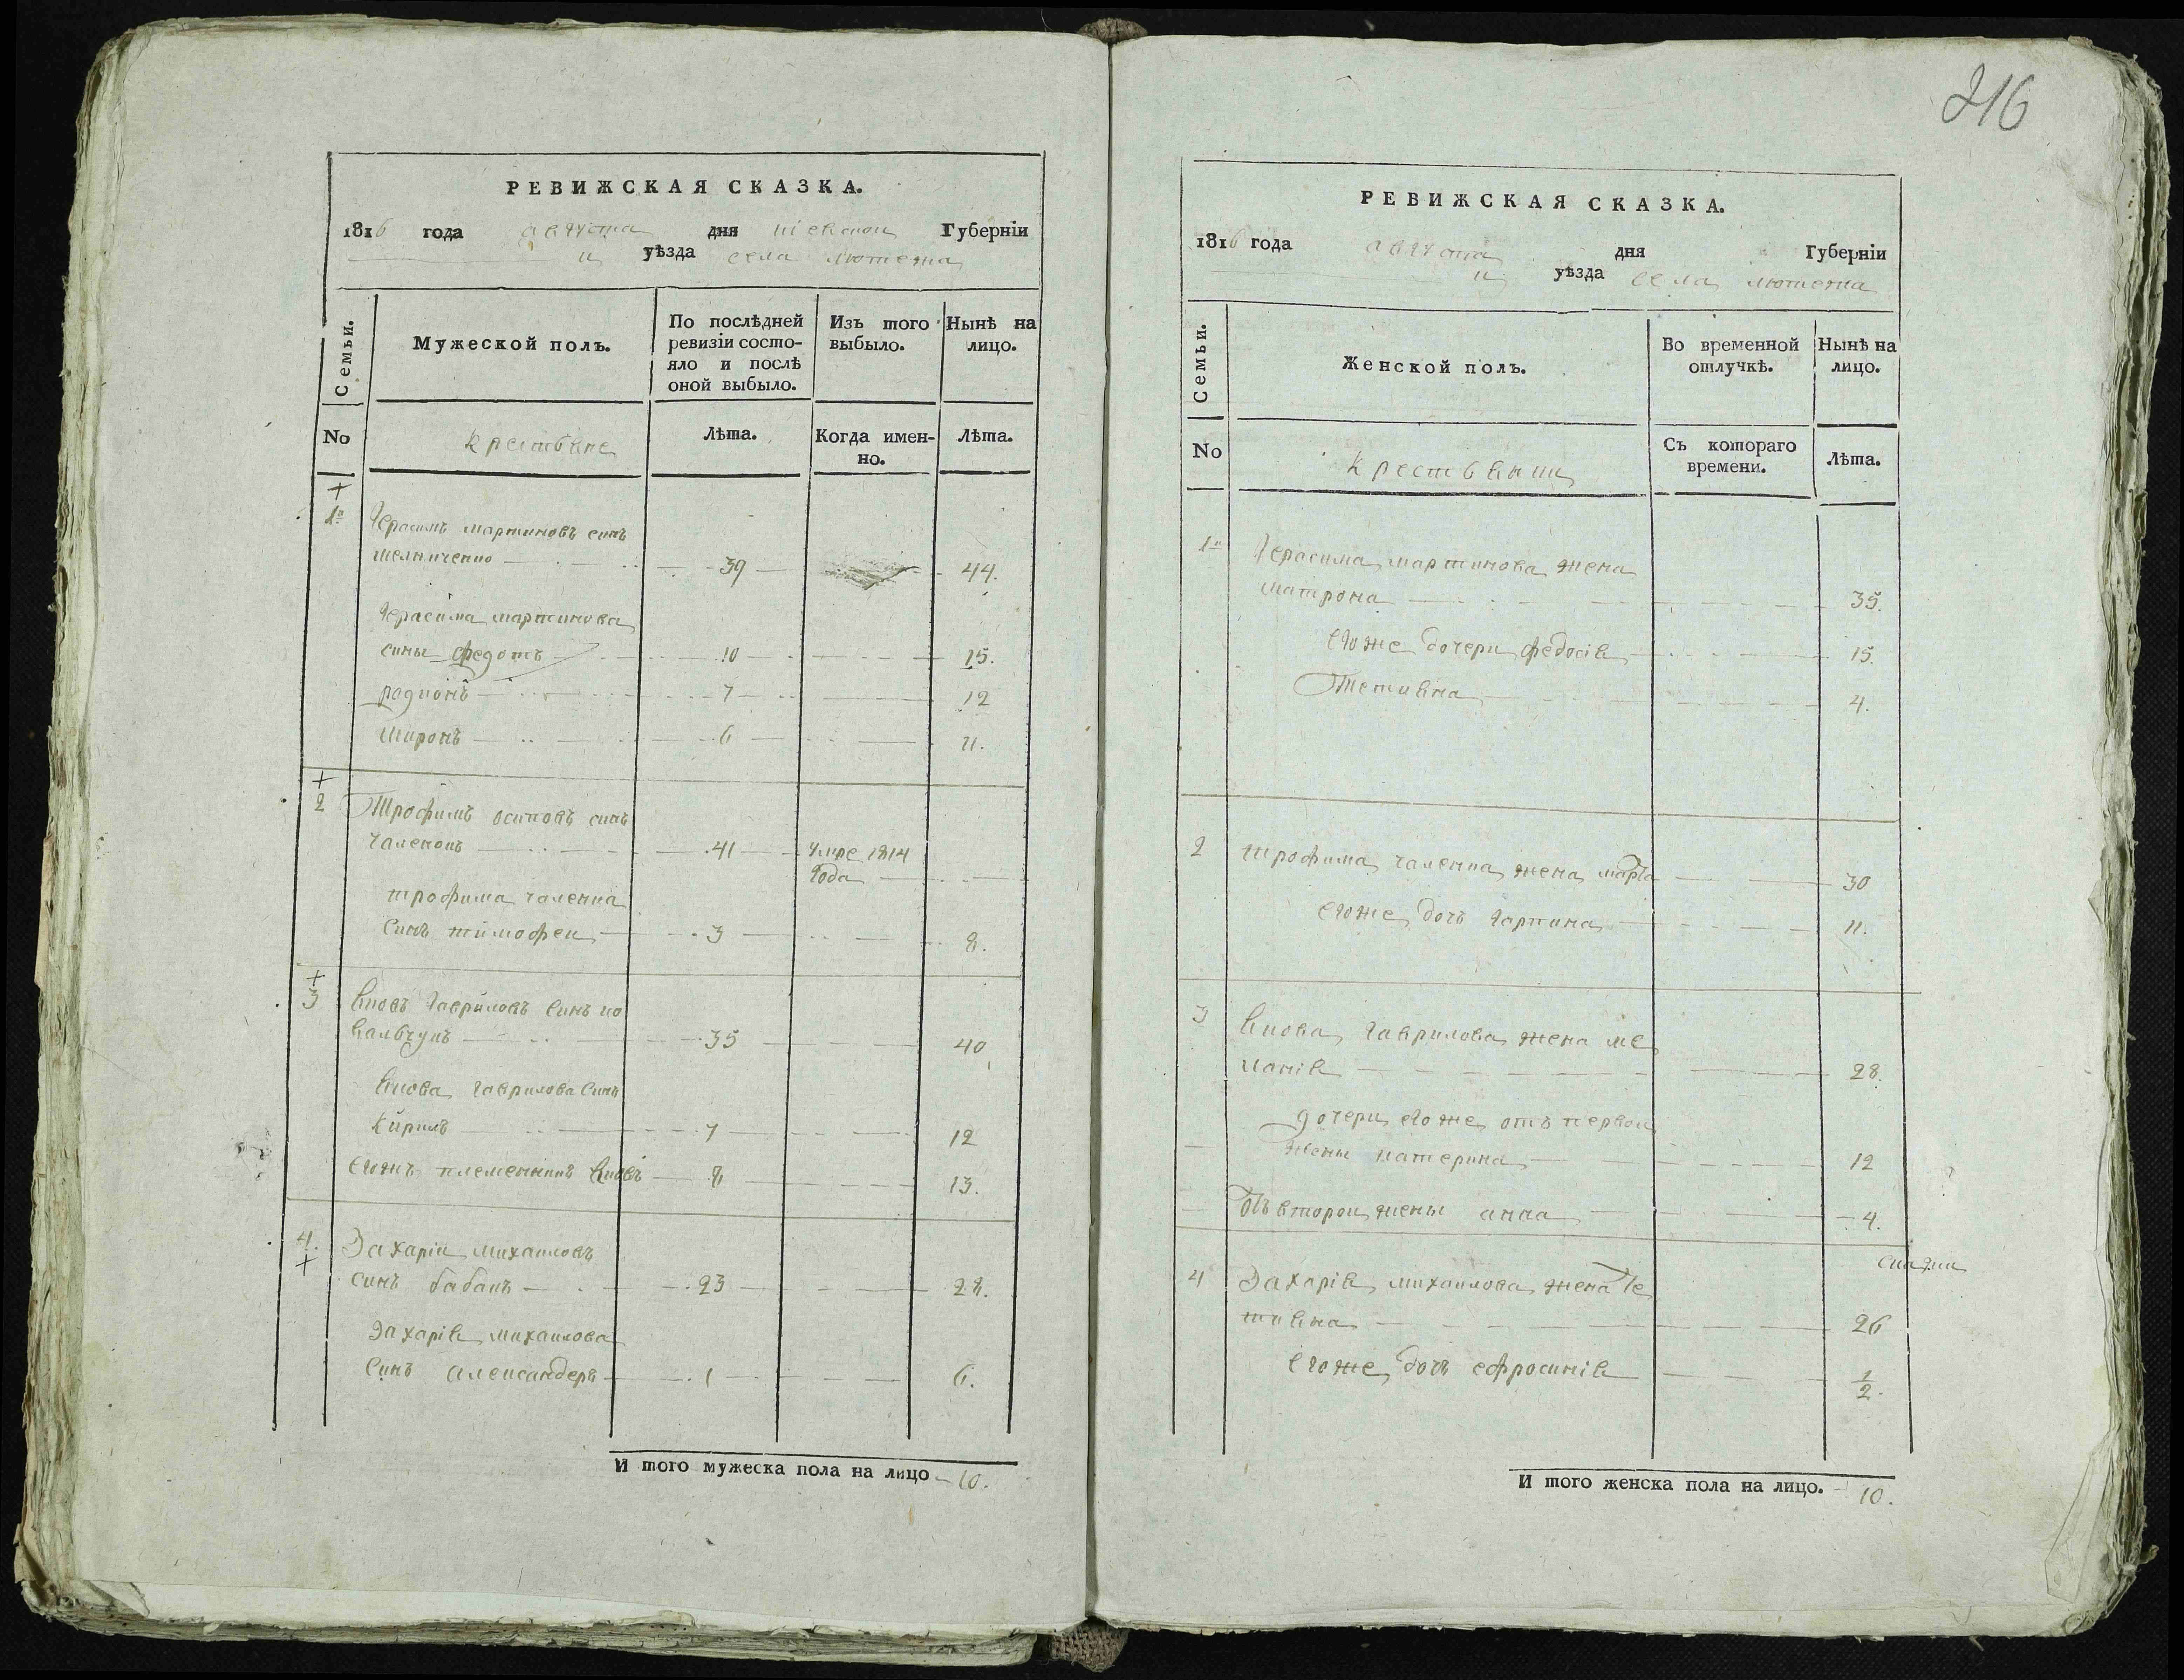 316
РЕВИЖСКАЯ СКАЗКА.
1816 года августа дня кіевской Губерніи
и уѣзда села лютежа
Семьи.
Мужеской полъ.
По послѣдней ревизіи состо-
яло и послѣ
оной выбыло.
Изъ того
выбыло.
Нынѣ на
лицо.
No
крестьяне
Лѣта.
Когда имен-
но.
Лѣта.
1й Герасимъ мартиновъ синъ
мелниченко 39 44.
Герасима мартинова
сины федотъ 10 15.
радионъ 7 12
миронъ 6 11.
2 Трофимъ осиповъ синъ
чаленокъ 41 умре 1814
года
трофима чаленка
синъ тимофеи 3 8.
3 яковъ гавриловъ синъ ко
вальчукъ 35 40
якова гаврилова синъ
кирилъ 7 12
егожъ племенникъ яковъ 8 13.
4. Захарии михаиловъ
синъ бабакъ 23 28.
Захарія михаилова
синъ александеръ 1 6.
И того мужеска пола на лицо 10.
РЕВИЖСКАЯ СКАЗКА.
1816 года августа дня Губерніи
и уѣзда села лютежа
Семьи.
Женской полъ.
Во временной
отлучкѣ.
Нынѣ на
лицо.
No
крестьянки
Съ котораго
времени.
Лѣта.
1й Герасима мартинова жена
матрона 35.
егоже дочери федосія 15.
Тетияна 4.
2 трофима чаленка жена марта 30
егоже дочь гарпина 11.
3 якова гаврилова жена ме
ланія 28.
дочери егоже отъ первои
жены катерина 12
Отъ второи жены анна 4.
4 Захарія михаилова жена те
тияна 26
егоже дочь ефросинія 1/2.
И того женска пола на лицо. 10.